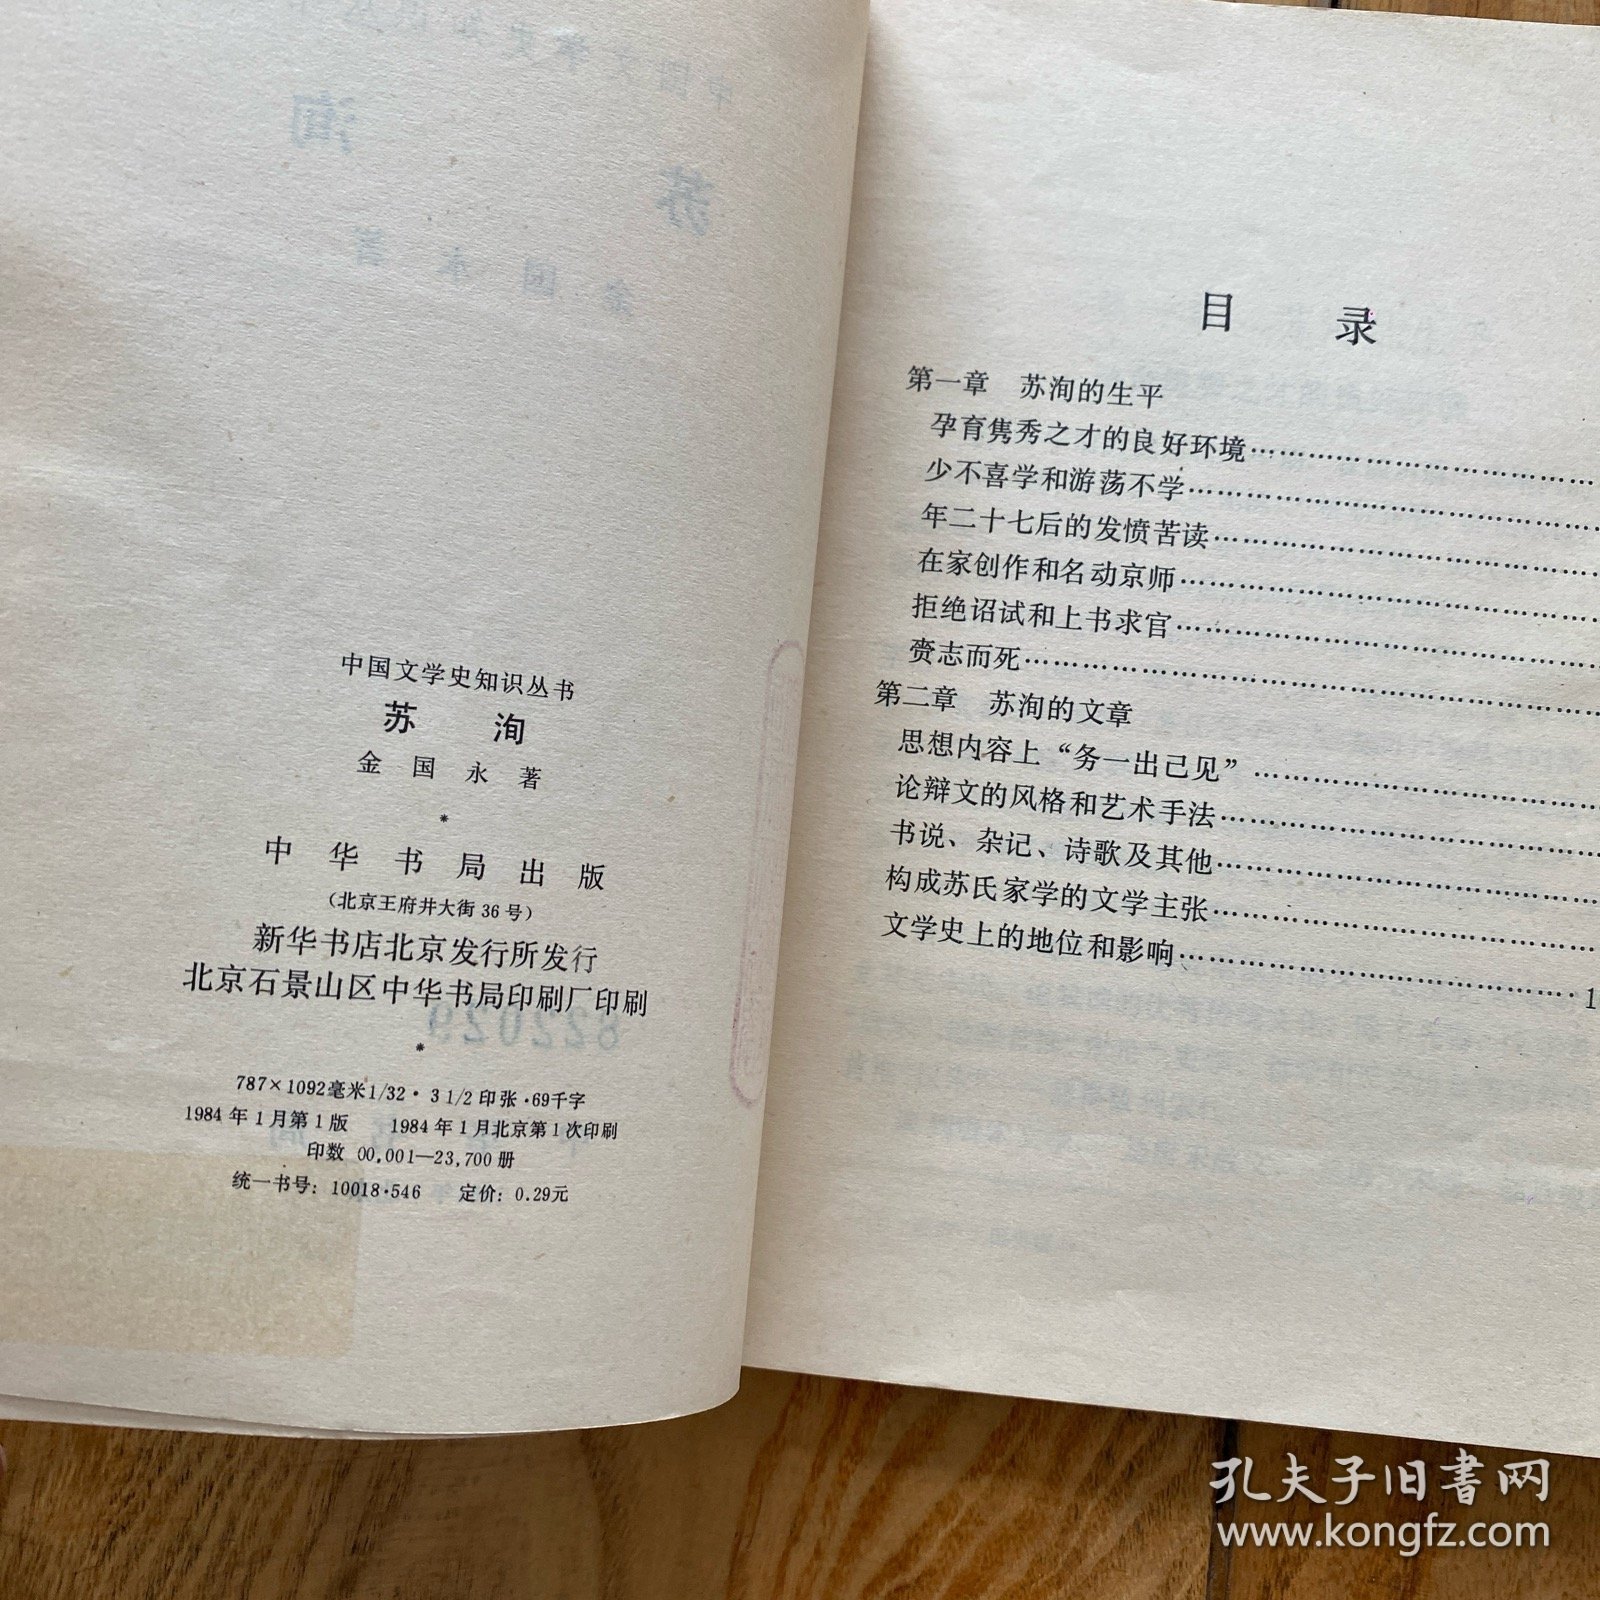 中国文学史知识丛书
苏 洵
金国永著
*
中华书局出版
（北京王府井大街 36 号）
新华书店北京发行所发行
北京石景山区中华书局印刷厂印刷
*
787×1092毫米1/32·3 1/2印张·69千字
1984年1月第1版 1984年1月北京第1次印刷
印数 00,001—23,700册
统一书号：10018·546 定价：0.29元
目 录
第一章 苏洵的生平
孕育隽秀之才的良好环境……………………
少不喜学和游荡不学……………………
年二十七后的发愤苦读……………………
在家创作和名动京师……………………
拒绝诏试和上书求官……………………
赍志而死……………………
第二章 苏洵的文章
思想内容上“务一出己见”……………………
论辩文的风格和艺术手法……………………
书说、杂记、诗歌及其他……………………
构成苏氏家学的文学主张……………………
文学史上的地位和影响……………………
孔夫子旧书网
www.kongfz.com